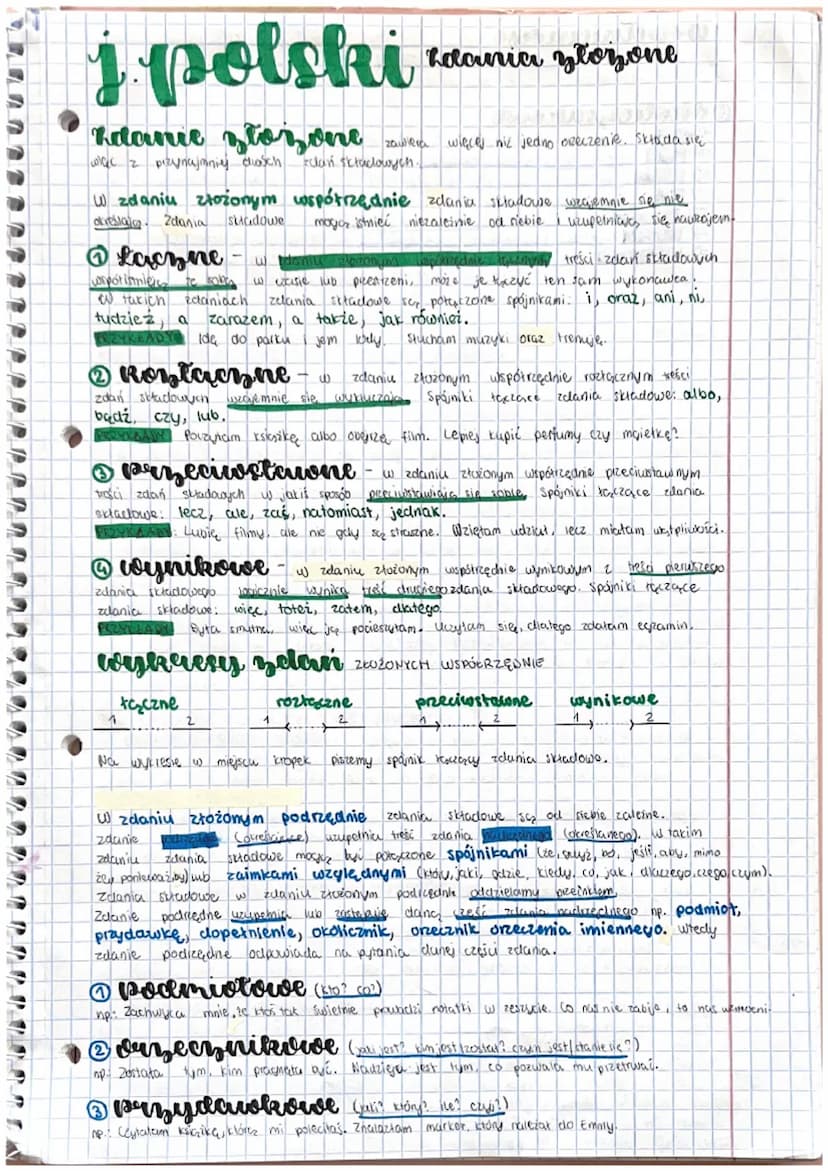 j. polski zdania złożone
zdanie złożone zawiera więcej niż jedno orzeczenie. Składa się
więc z przynajmniej dwóch zdań składowych.
W zdaniu złożonym współrzędnie zdania składowe wzajemnie się nie
określają. Zdania składowe mogą istnieć niezależnie od siebie i uzupełniają się nawzajem.
1 Łączne - w zdaniu złożonym współrzędnie łącznym treści zdań składowych
współistnieją ze sobą w czasie lub przestrzeni, może je łączyć ten sam wykonawca.
W takich zdaniach zdania składowe są połączone spójnikami: i, oraz, ani, ni,
tudzież, a zarazem, a także, jak również.
PRZYKŁADY Idę do parku i jem lody. Słucham muzyki oraz trenuję.
2 Rozłączne - w zdaniu złożonym współrzędnie rozłącznym treści
zdań składowych wzajemnie się wykluczają. Spójniki łączące zdania składowe: albo,
bądź, czy, lub.
PRZYKŁADY Poczytam książkę albo obejrzę film. Lepiej kupić perfumy czy mgiełkę?
3 przeciwstawne - w zdaniu złożonym współrzędnie przeciwstawnym
treści zdań składowych w jakiś sposób przeciwstawiają się sobie. Spójniki łączące zdania
składowe: lecz, ale, zaś, natomiast, jednak.
PRZYKŁADY: Lubię filmy, ale nie gdy są straszne. Wzięłam udział, lecz miałam wątpliwości.
4 wynikowe - w zdaniu złożonym współrzędnie wynikowym z treści pierwszego
zdania składowego logicznie wynika treść drugiego zdania składowego. Spójniki łączące
zdania składowe: więc, toteż, zatem, dlatego.
PRZYKŁADY Była smutna, więc ją pocieszyłam. Uczyłam się, dlatego zdałam egzamin.
wykresy zdań ZŁOŻONYCH WSPÓŁRZĘDNIE
łączne rozłączne przeciwstawne wynikowe
1 2 1 2 1 2 1 2
Na wykresie w miejscu kropek piszemy spójnik łączący zdania składowe.
W zdaniu złożonym podrzędnie zdania składowe są od siebie zależne.
zdanie podrzędne (określające) uzupełnia treść zdania nadrzędnego (określanego). w takim
zdaniu zdania składowe mogą być połączone spójnikami (że, gdyż, bo, jeśli, aby, mimo
że, ponieważ, by) lub zaimkami względnymi (który, jaki, gdzie, kiedy, co, jak, dlaczego, czego, czym).
Zdania składowe w zdaniu złożonym podrzędnie oddzielamy przecinkiem.
Zdanie podrzędne uzupełnia lub zastępuje daną część zdania nadrzędnego np. podmiot,
przydawkę, dopełnienie, okolicznik, orzecznik orzeczenia imiennego. wtedy
zdanie podrzędne odpowiada na pytania danej części zdania.
1 podmiotowe (kto? co?)
np.: Zachwyca mnie, że ktoś tak świetnie prowadzi notatki w zeszycie. Co nas nie zabije, to nas wzmocni.
2 orzecznikowe (jaki jest? kim jest/został? czym jest/stanie się?)
np.: Została tym, kim pragnęła być. Nadzieja jest tym, co pozwala mu przetrwać.
3 przydawkowe (jaki? który? ile? czyj?)
np.: Czytałam książkę, którą mi poleciłaś. Znalazłam marker, który należał do Emily.